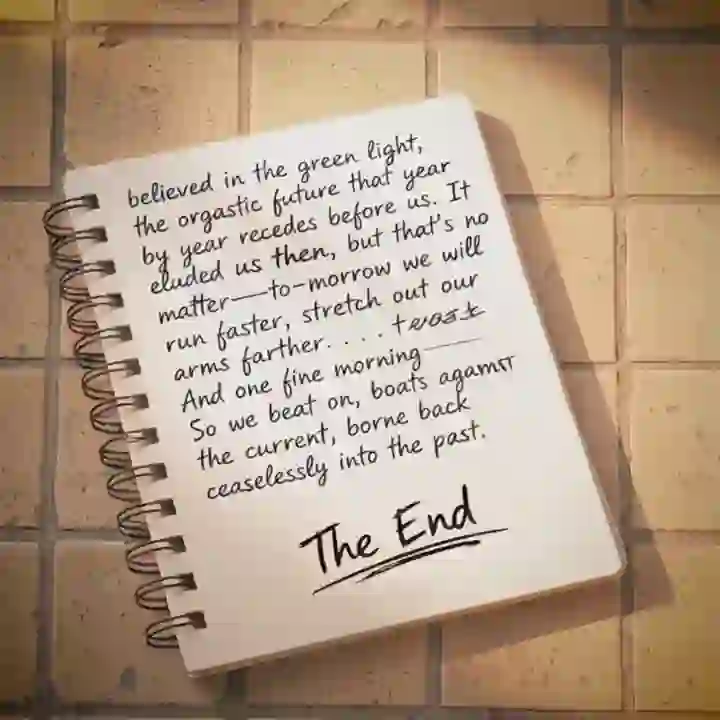 believed in the green light,
the orgastic future that year
by year recedes before us. It
eluded us then, but that's no
matter—to-morrow we will
run faster, stretch out our
arms farther. . . .
And one fine morning—
So we beat on, boats against
the current, borne back
ceaselessly into the past.
The End